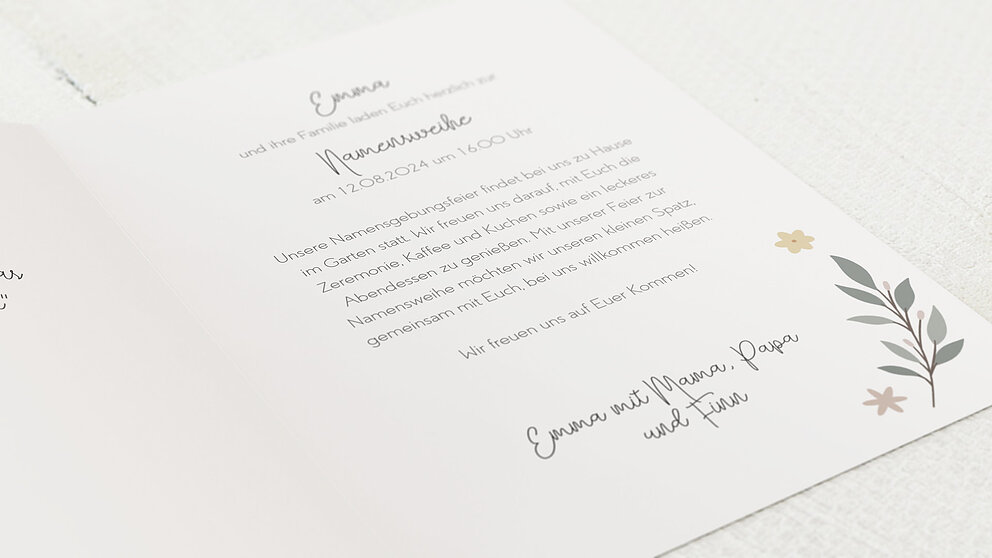 Emma
und ihre Familie laden Euch herzlich zur
Namensweihe
am 12.08.2024 um 16:00 Uhr
Unsere Namensgebungsfeier findet bei uns zu Hause
im Garten statt. Wir freuen uns darauf, mit Euch die
Zeremonie, Kaffee und Kuchen sowie ein leckeres
Abendessen zu genießen. Mit unserer Feier zur
Namensweihe möchten wir unseren kleinen Spatz,
gemeinsam mit Euch, bei uns willkommen heißen.
Wir freuen uns auf Euer Kommen!
Emma mit Mama, Papa
und Finn